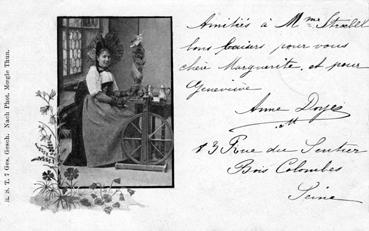 Amitiés à Mme Stœbel
bons baisers pour vous
chère Marguerite, et pour
Geneviève
Anne Doyes
13 Rue du Sentier
Bois Colombes
Seine
R. S. T. 7 Ges. Gesch. Nach Phot. Moegle Thun.